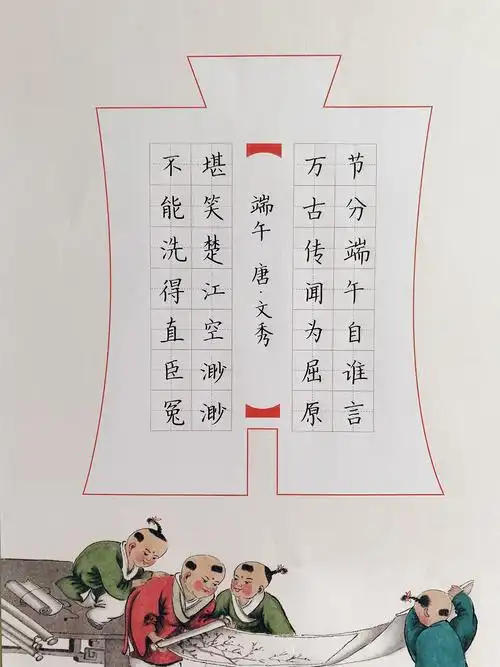 节分端午自谁言
万古传闻为屈原
端午 唐·文秀
堪笑楚江空渺渺
不能洗得直臣冤